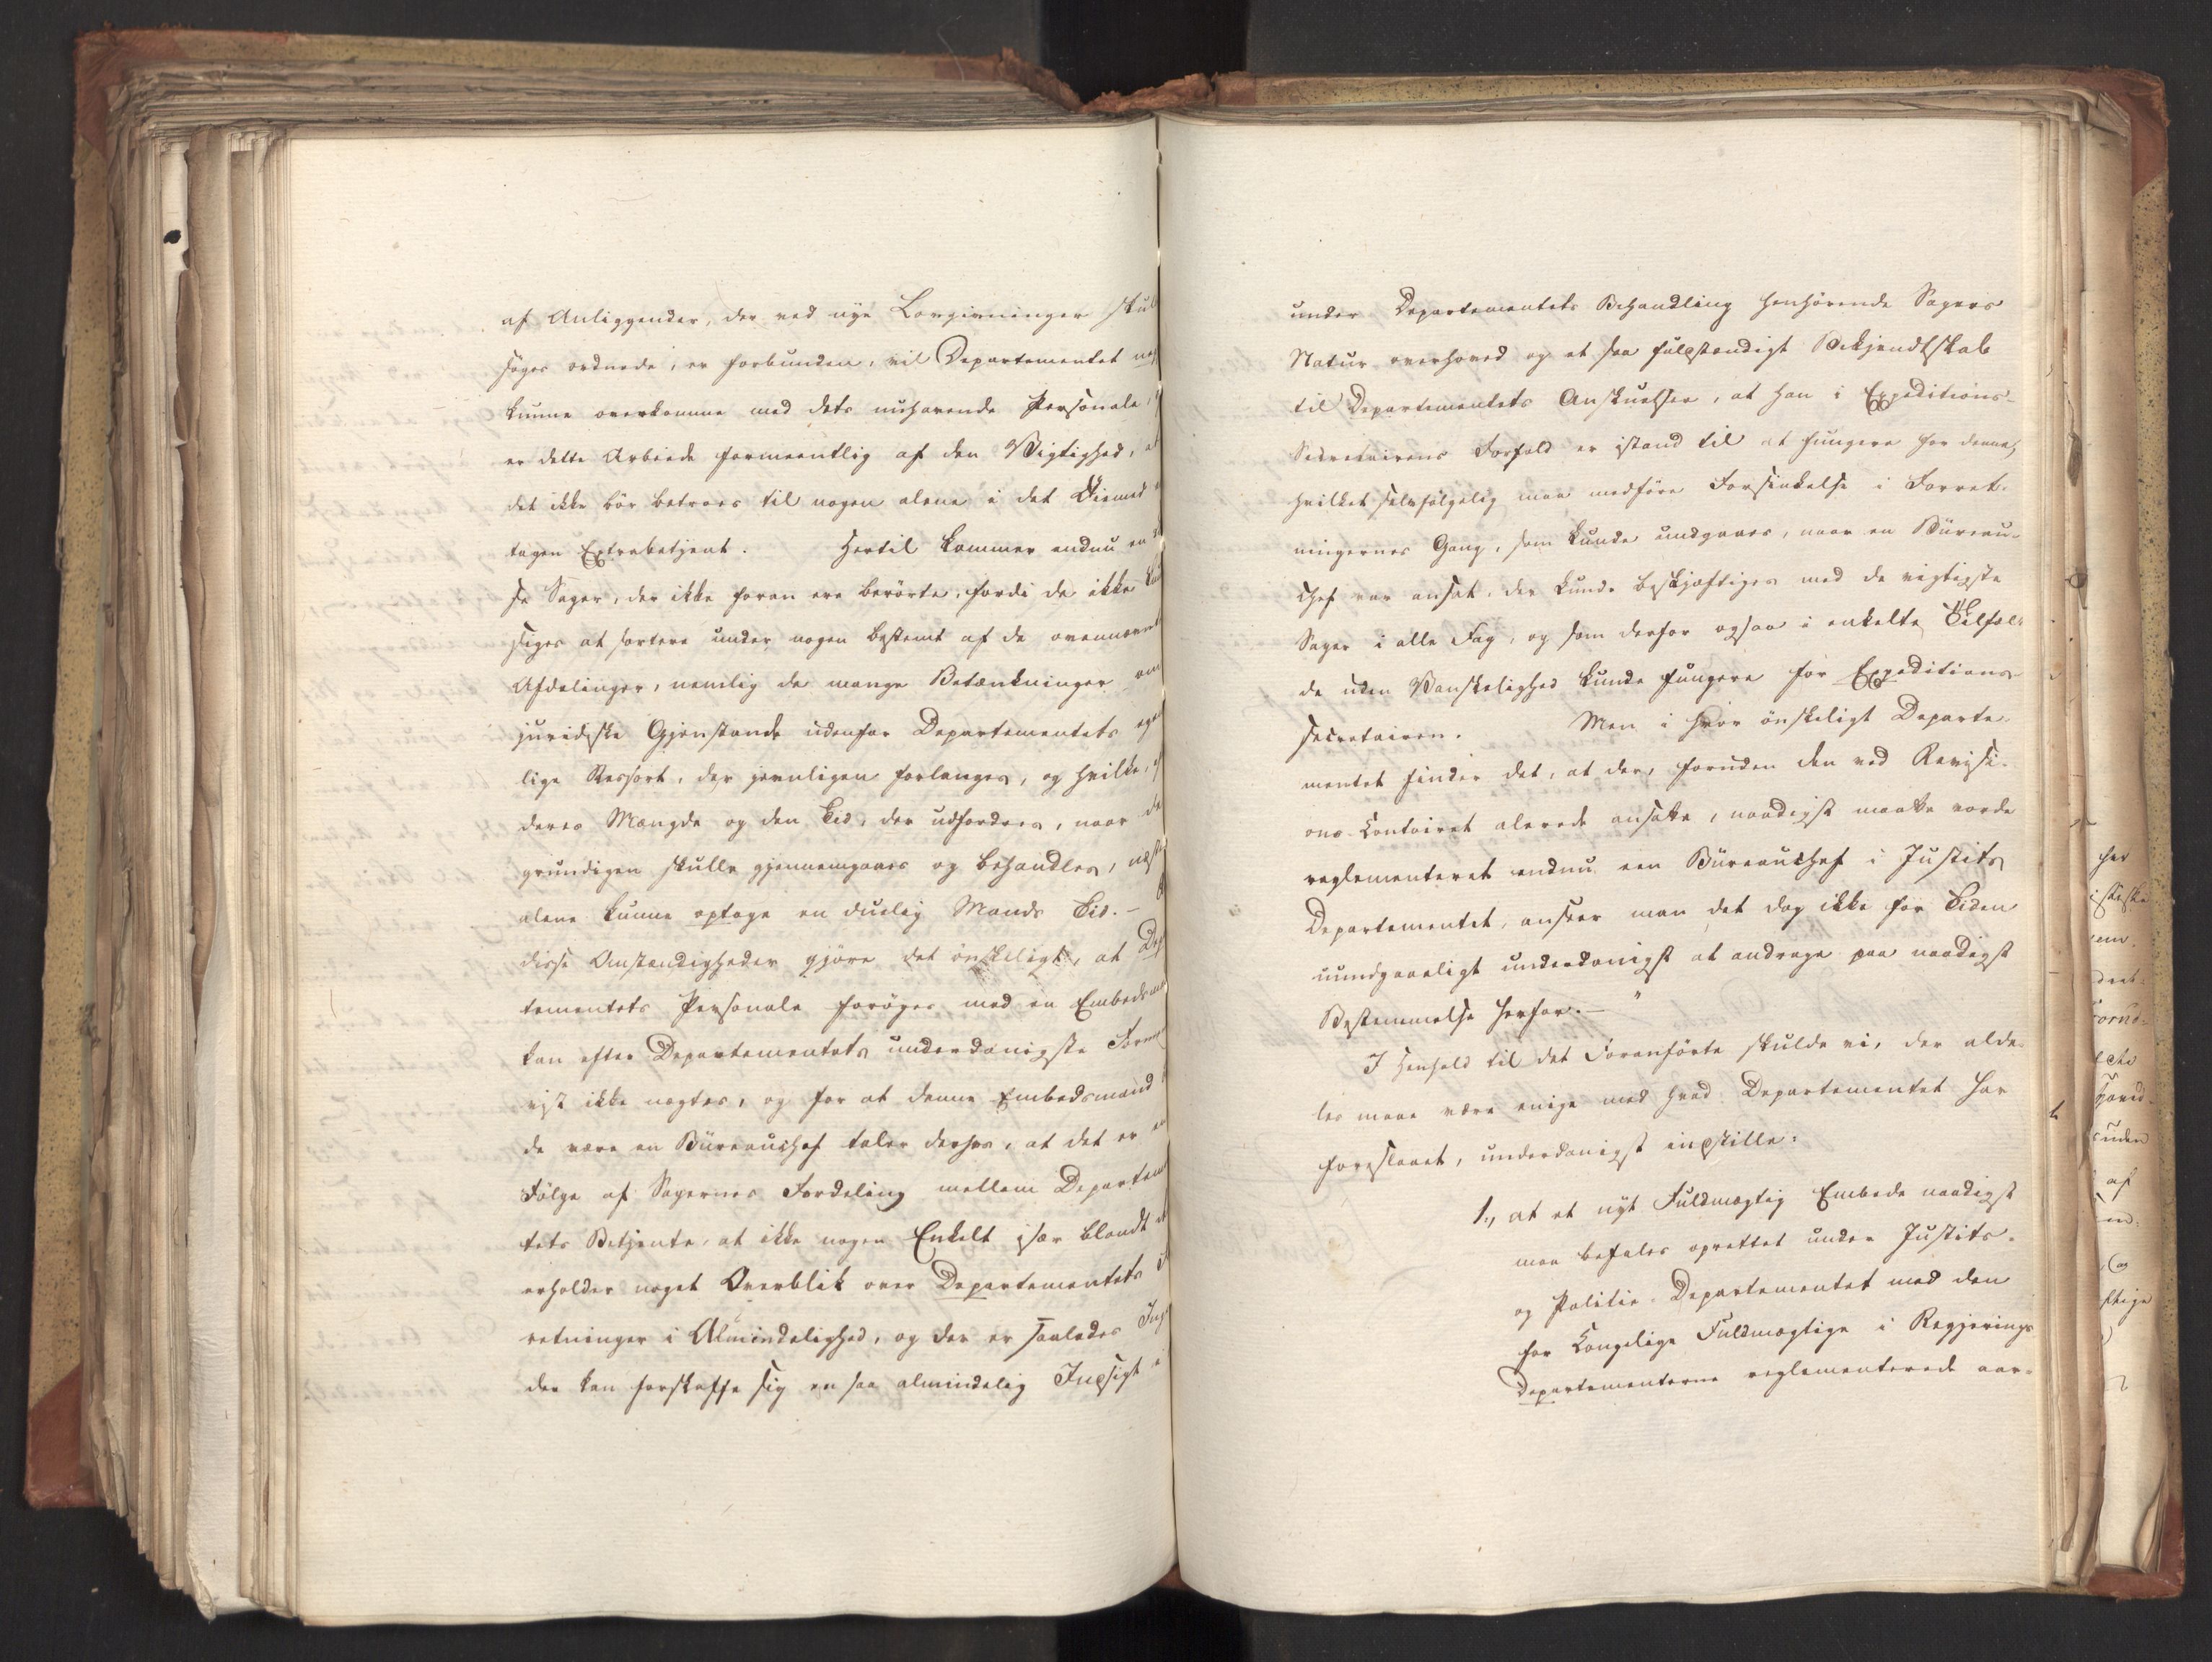 af Anliggender, der ved nye Lovgivninger skul
söges ordnede, er forbunden, vil Departementet
kunne overkomme med dets nuhavende Personale,
er dette Arbeide formeentlig af den Vigtighed,
det ikke bör betroes til nogen alene i det Öiemed
tagen Extrabetjent. Hertil kommer endnu en
se Sager, der ikke foran ere berörte, fordi de ikke
siges at sortere under nogen bestemt af de ovennævnt
Afdelinger, nemlig de mange Betænkninger om
juridiske Gjenstande udenfor Departementets egen
lige Ressort, der jevnligen forlanges, og hvilke,
deres Mængde og den Tid, der udfordres, naar de
grundigen skulle gjennemgaaes og behandles, næsten
alene kunne optage en duelig Mands Tid. —
disse Omstændigheder gjöre det önskeligt, at Dep
tementets Personale foröges med en Embedsma
kan efter Departementets underdanigste Forme
ist ikke nægtes, og for at denne Embedsmand
de være en Büreauchef taler derhos, at det er en
Fölge af Sagernes Fordeling mellem Departem
tets Betjente, at ikke nogen Enkelt især blandt
erholder noget Overblik over Departementets
retninger i Almindelighed, og der er saaledes Ing
der kan forskaffe sig en saa almindelig Indsigt i
under Departementets Behandling henhörende Sagers
Natur overhoved og et saa fuldstændigt Bekjendtskab
til Departementets Anskuelser, at han i Expeditions-
Secretairens Forfald er istand til at fungere for denne,
hvilket selvfölgelig maa medföre Forsinkelse i Forret-
ningernes Gang, som kunde undgaaes, naar en Büreau-
chef var ansat, der kunde beskjæftiges med de vigtigste
Sager i alle Fag, og som derfor ogsaa i enkelte Tilfæl-
de uden Vanskelighed kunde fungere for Expeditions-
secretairen. Men i hvor önskeligt Departe-
mentet finder det, at der, foruden den ved Revisi-
ons-Contoiret allerede ansatte, naadigst maatte vorde
reglementeret endnu een Büreauchef i Justits
Departementet, anseer man det dog ikke for Tiden
uundgaaeligt underdanigst at andrage paa naadigst
Bestemmelse herfor. — "
I Henhold til det Foranförte skulde vi, der alde-
les maae være enige med hvad Departementet har
foreslaaet, underdanigst indstille:
1., at et nyt Fuldmægtig Embede naadigst
maa befales oprettet under Justits-
og Politie-Departementet med den
for Kongelige Fuldmægtige i Regjerings
Departementerne reglementerede aar-